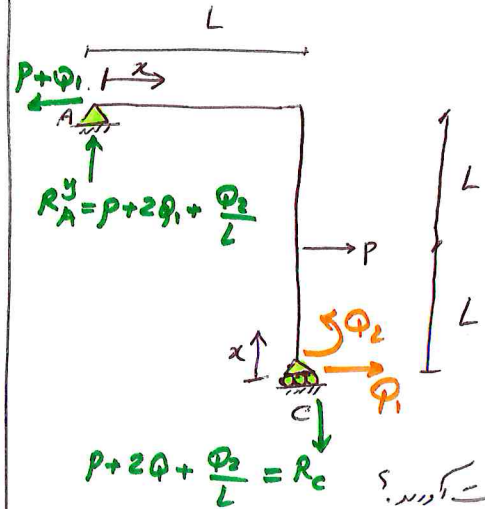 L
P+Q₁
x
A
R_A^y = P+2Q₁+Q₂/L
L
P
L
Q₂
x
Q₁
C
P+2Q+Q₂/L = R_C